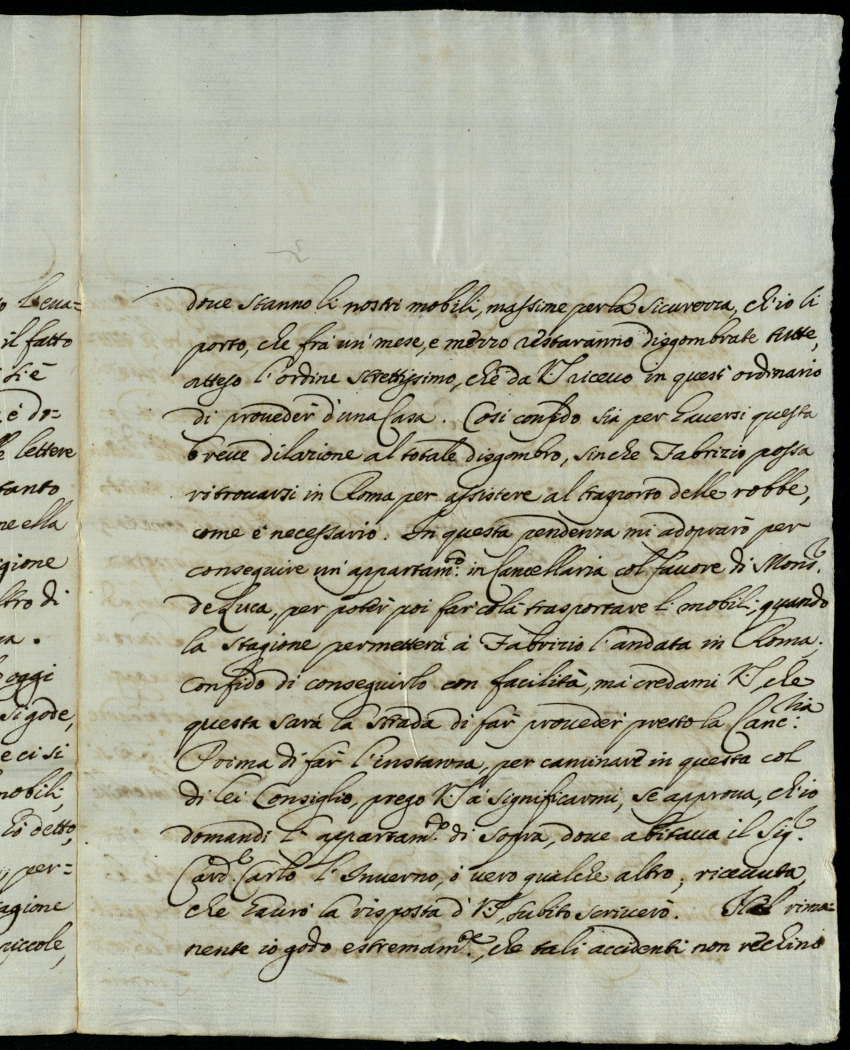 o leua=
il fatto
si è
è do=
lettere
tanto
ne ella
gione
ltro di
za.
oggi
si gode,
e ci si
mobili,
hò detto,
per=
agione
piccole,
doue stanno li nostri mobili, massime per la sicurezza, ch'io li
porto, che frà un' mese, e mezzo restaranno disgombrate tutte,
atteso l'ordine strettissimo, che da V.S. riceuo in quest'ordinario
di proueder d'una Casa. Così confido sia per hauersi questa
breue dilazione al totale disgombro, sinche Fabrizio possa
ritrouarsi in Roma per assistere al trasporto delle robbe,
come è necessario. In questa pendenza mi adoprarò per
conseguire un' appartam.to in Cancellaria col fauore di Mons.r
de Luca, per poter poi far colà trasportare li mobili, quando
la stagione permetterà à Fabrizio l'andata in Roma.
Confido di conseguirlo con facilità, mà credami V.S. che
questa sarà la strada di far proueder presto la Canc.lia
Prima di far l'instanza, per caminare in questa col
di lei Consiglio, prego V.S. à significarmi, se approua, ch'io
domandi l'appartam.to di sopra, doue abitaua il Sig.r
Card.l Carlo l'Inuerno, ò uero qualche altro; riceuuta,
che haurò la risposta di V.S. subito scriuerò. Nel rima=
nente io godo estremam.te, che tali accidenti non rechino